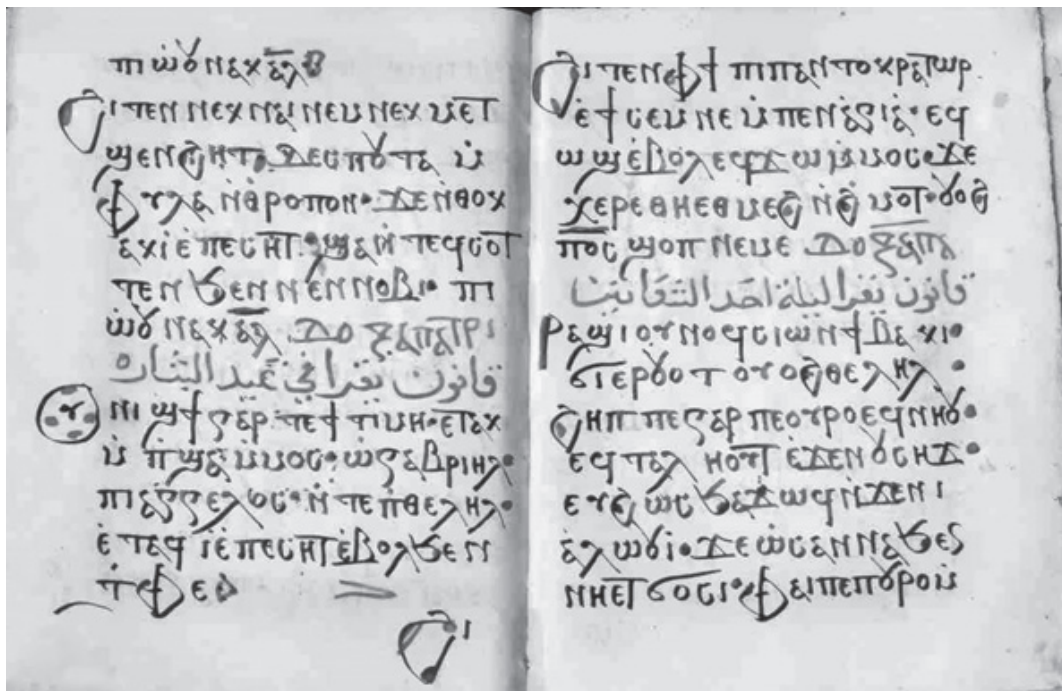 ⲡⲓⲱ̀ⲟⲩ ⲛⲁⲕ ⲁ̅ⲗ̅
ϩⲓⲧⲉⲛ ⲛⲉⲕⲛⲁⲓ ⲛⲉⲙ ⲛⲉⲕⲙⲉⲧ
ϣⲉⲛϩⲏⲧ ⲇⲉⲥⲡⲟⲩⲧⲁ ⲙ̀
ⲫⲩⲗⲁⲛⲑⲣⲟⲡⲟⲛ· ϫⲉ ⲛ̀ⲑⲟⲕ
ⲁⲕⲓ ⲉ̀ⲡⲉⲥⲏⲧ· ϣⲁⲛ̀ⲧⲉϥⲥⲟⲧ
ⲧⲉⲛ ϧⲉⲛ ⲛⲉⲛⲛⲟⲃⲓ· ⲡⲓ
ⲱ̀ⲟⲩ ⲛⲁⲕ ⲁ̅ⲗ̅ ⲇⲟⲝⲁⲡⲁⲧⲣⲓ
قانون يقرا في عيد البشاره
ⲛⲓϣϯ ⲅⲁⲣ ⲧⲉ ϯⲧⲓⲙⲏ· ⲉⲧⲁⲕ
ⲙ̀ⲡϣⲁ ⲙ̀ⲙⲟⲥ· ⲱ̀ ⲅⲁⲃⲣⲓⲏⲗ·
ⲡⲓⲁⲅⲅⲉⲗⲟⲥ· ⲛ̀ⲧⲉ ⲡ̀ⲑⲉⲗⲏⲗ·
ⲉ̀ⲧⲁϥⲓ̀ ⲉ̀ⲡⲉⲥⲏⲧ ⲉ̀ⲃⲟⲗ ϧⲉⲛ
ⲧ̀ⲫⲉ
ϩⲓ
ϩⲓⲧⲉⲛ ⲫϯ ⲡⲓⲡⲁⲛⲧⲟⲕⲣⲁⲧⲱⲣ
ⲉϥ
ⲱϣ ⲉ̀ⲃⲟⲗ ⲉϥϫⲱ ⲙ̀ⲙⲟⲥ· ϫⲉ
ⲭⲉⲣⲉ ⲑⲏⲉⲑⲙⲉϩ ⲛ̀ϩ̀ⲙⲟⲧ· ⲟⲩⲟϩ
ⲡⲟ̅ⲥ̅ ϣⲟⲡ ⲛⲉⲙⲉ ⲇⲟⲝⲁⲡⲁ
قانون يقرا ليلة احد الشعانين
ⲣⲁϣⲓ ⲟⲩⲛⲟϥ ⲥⲓⲱⲛ ϯⲃⲁⲕⲓ·
ⲟⲩⲟϩ ⲑⲉⲗⲏⲗ·
ϩⲏⲡⲡⲉ ⲅⲁⲣ ⲡⲉⲟⲩⲣⲟ ⲉϥⲛⲏⲟⲩ·
ⲉϥⲧⲁⲗⲏⲟⲩⲧ ⲉ̀ϫⲉⲛ ⲟⲩⲥⲏϫ·
ⲉⲩϩⲱⲥ ϧⲁϫⲱϥ ⲛ̀ϫⲉ ⲛⲓ
ⲁ̀ⲗⲱⲟⲩⲓ̀·
ⲛⲏⲉⲧϭⲟⲥⲓ·